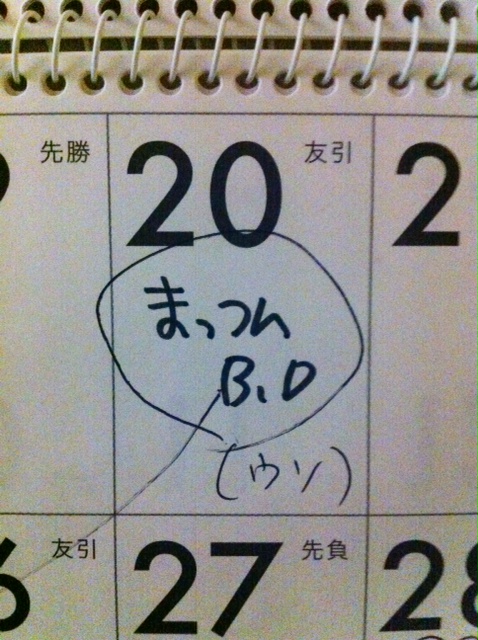 先勝 20 友引 2
まっつん
B.D
(ウソ)
6 友引 27 先負 28